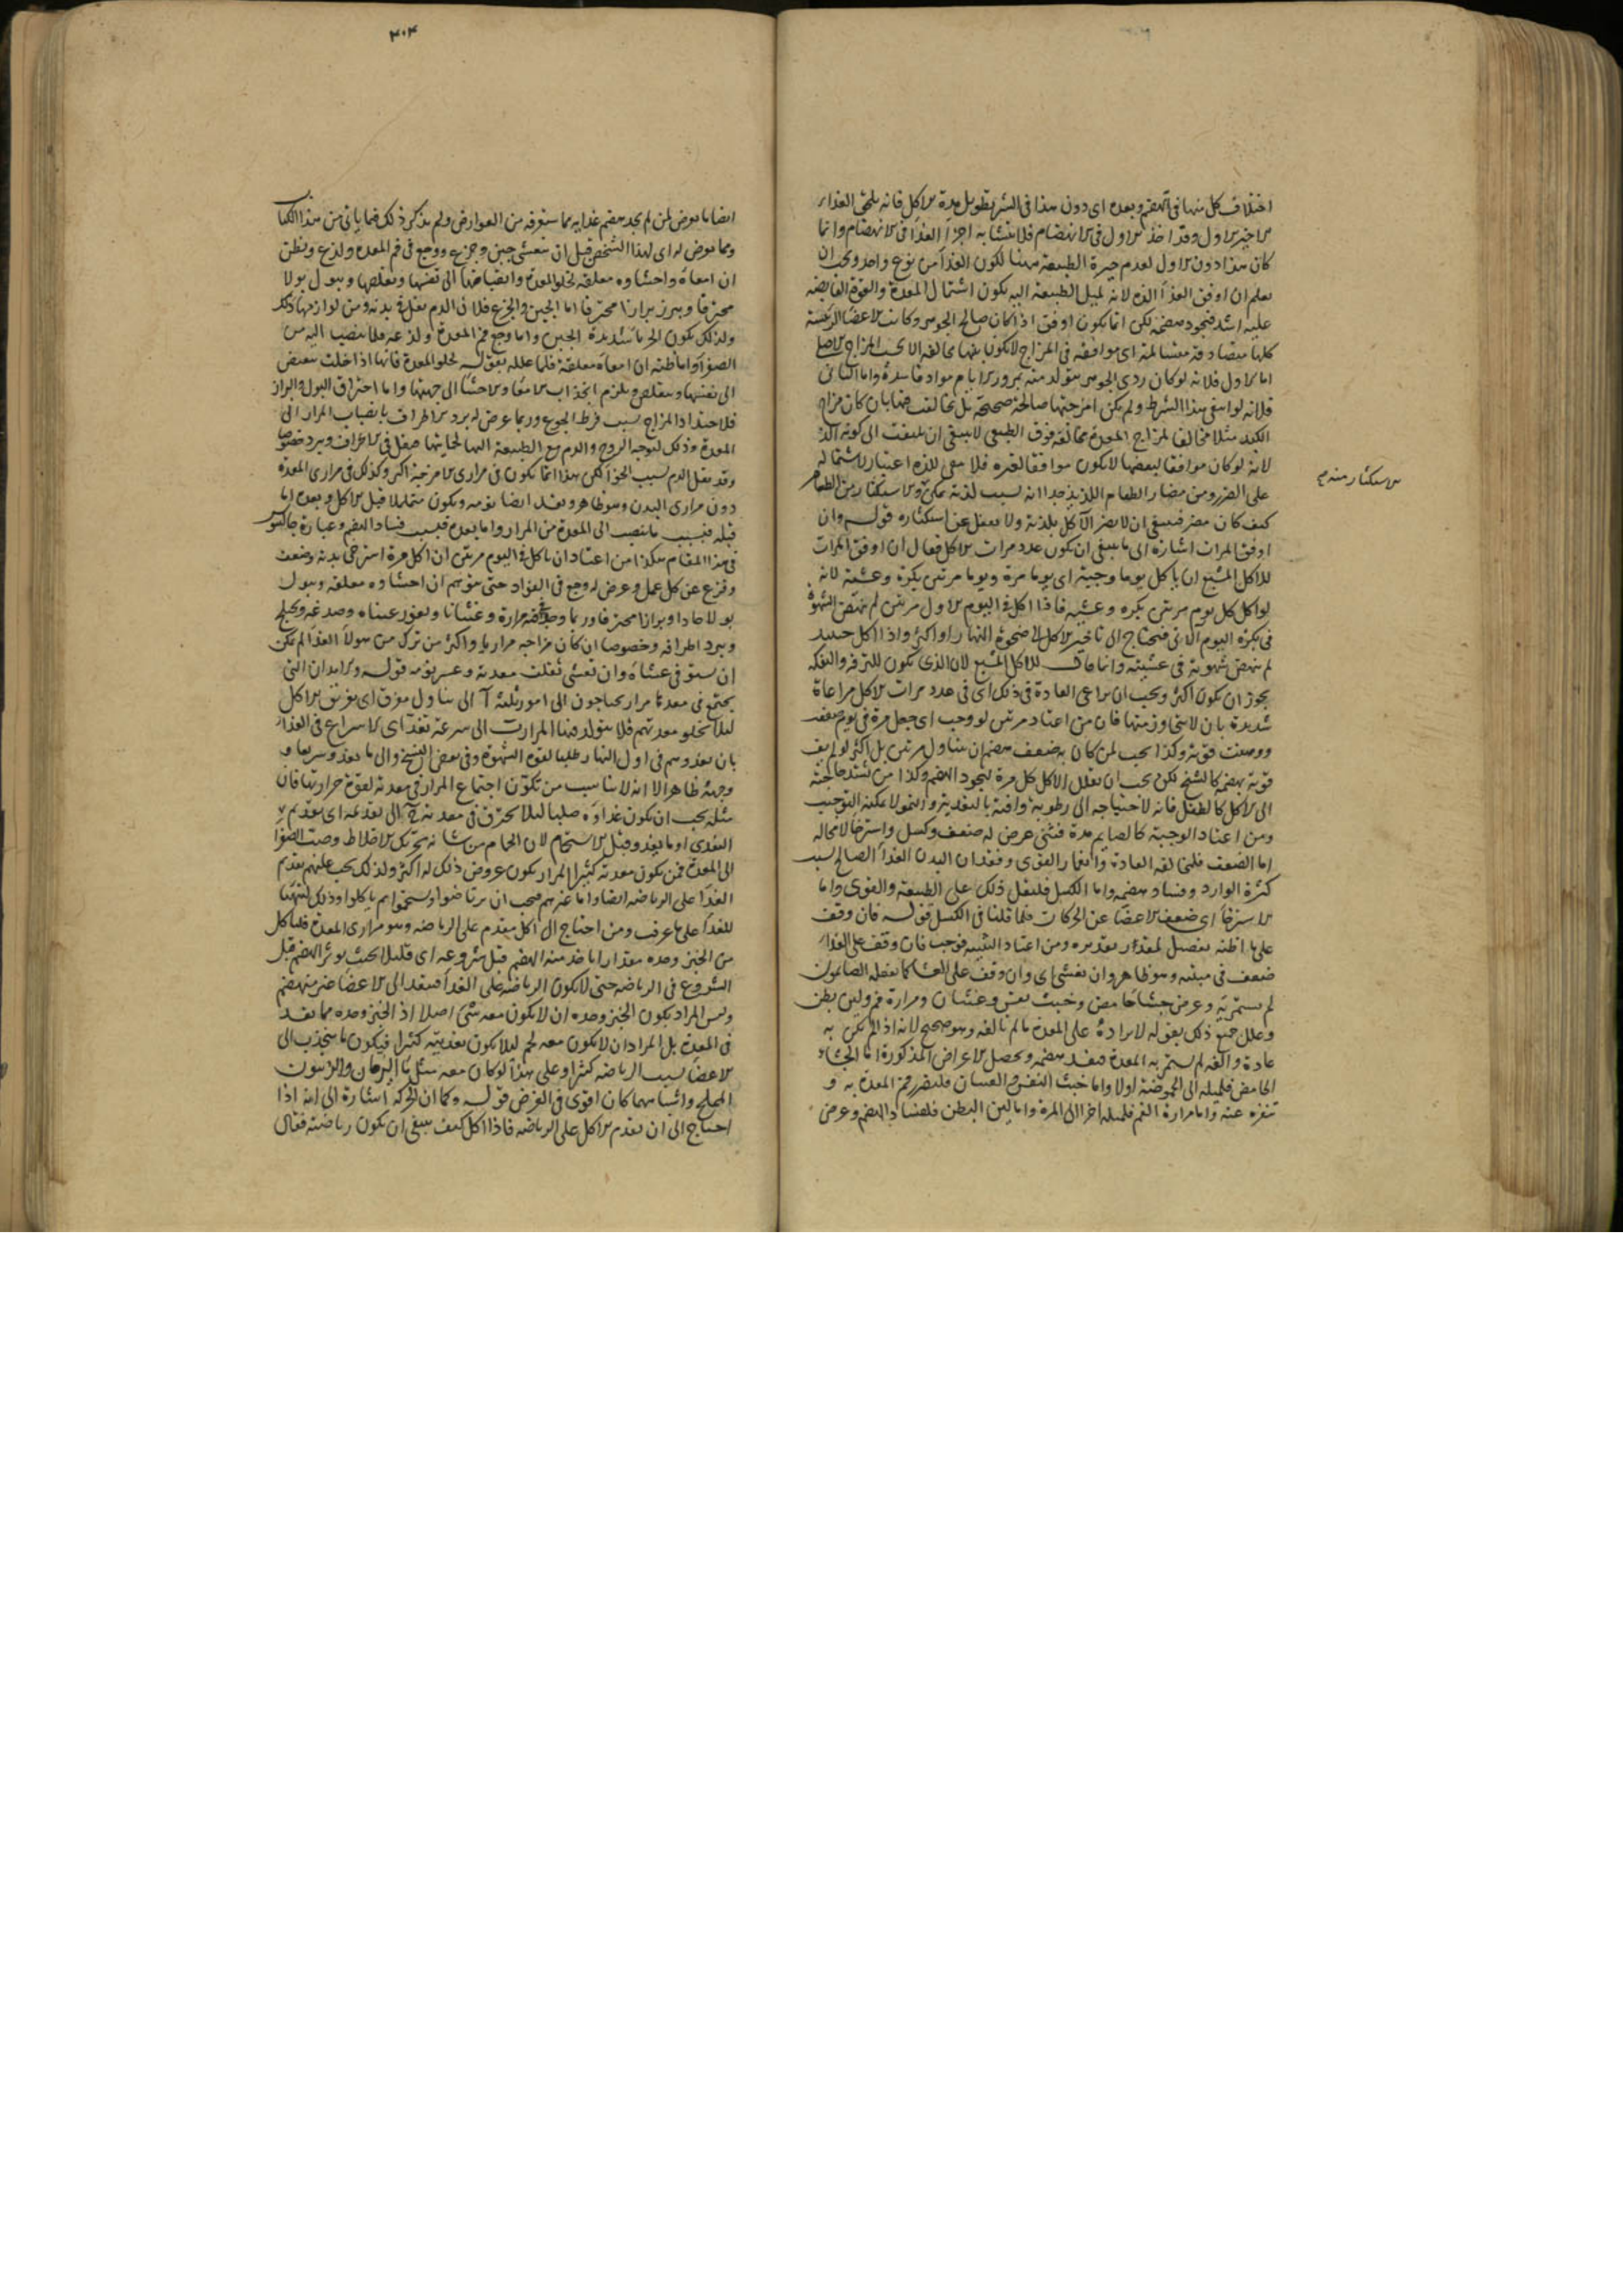 اختلاف كل منها فى الهضم وبعده اى دون هذا فى الشر تطويل مدة الاكل فانه يلحق الغذاء
الاخير الاول وقد اخذ الاول فى الانهضام فلا يتشابه اجزاء الغذا فى الانهضام وانما
كان هذا دون الاول لعدم حيرة الطبيعة ههنا لكون الغذا من نوع واحد ويجب ان
يعلم ان اوفق الغذا الذه لانه لميل الطبيعة اليه يكون اشتمال المعدة والقوة القابضة
عليه اشد فيجود هضمه لكن انما يكون اوفق اذا كان صالح الجوهر وكانت الاعضا الرئيسة
كلها متصادقة متسالمة اى موافقة فى المزاج لا يكون بينها مخالفة الا بحسب المزاج الاصل
اما الاول فلانه لو كان ردى الجوهر يتولد منه بمرور الايام مواد فاسدة واما الثانى
فلانه لو انتفى هذا الشرط ولم يكن امزجتها صالحة صحيحة بل تخالفت فيها بان كان مزاج
الكبد مثلا مخالفا لمزاج المعدة مخالفة فوق الطبيعى لا ينبغى ان يلتفت الى كونه الذ
لانه لو كان موافقا لبعضها لا يكون موافقا لغيره فلا يبقى للذة اعتبار لاشتماله
على الضرر ومن مضار الطعام اللذيذ جدا انه بسبب لذته يمكن الاستكثار من الطعام
الاستكثار منه م
كيف كان مضر فينبغى ان لا يغتر الآكل بلذته ولا يغفل عن استكثاره قوله وان
اوفق المرات اشارة الى ما ينبغى ان يكون عدد مرات الاكل فقال ان اوفق المرات
للاكل المشبع ان ياكل يوما وجبة اى يوما مرة ويوما مرتين بكرة وعشية لانه
لو اكل كل يوم مرتين بكره وعشية فاذا اكل فى اليوم الاول مرتين لم ينهض الشهوة
فى بكرة اليوم الثانى فيحتاج الى تاخير الاكل الى ضحوة النهار او اكثر واذا اكل حينئذ
لم ينهض شهوته فى عشيته وانما قال للاكل المشبع لان الذى يكون للترفه والتفكه
يجوز ان يكون اكثر ويجب ان يراعى العادة فى ذلك اى فى عدد مرات الاكل مراعاة
شديدة بان لا يتجاوز منها فان من اعتاد مرتين لو وجب اى جعل مرة فى يوم ضعف
ووهنت قوته وكذا يجب لمن كان به ضعف هضم ان يتناول مرتين بل اكثر لو لم يف
قوته بهضم كالشيخ لكن يجب ان يقلل الاكل كل مرة ليجود الهضم وكذا من يشتد حاجته
الى الاكل كالطفل فانه لاحتياجه الى رطوبة وافية بالتغذية والنمو لا يمكنه التوجيب
ومن اعتاد الوجبة كالصايم مدة فثنى عرض له ضعف وكسل واسترخا لا محاله
اما الضعف فلمخالفه العادة وانغمار القوى وفقدان البدن الغذا الصالح بسبب
كثرة الوارد وفساد هضمه واما الكسل فلثقل ذلك على الطبيعة والقوى واما
الاسترخا اى ضعف الاعضا عن الحركات فلما قلنا فى الكسل قوله فان وقف
على ما اظنه تفصيل لمقدر تقديره ومن اعتاد التثنية فوجب فان وقف على الغذاء
ضعف فى مبيته وهو ظاهر وان تعشى اى وان وقف على العشا كما يفعله الصايمون
لم يستمريه وعرض جشا حامض وخبث نفس وغثيان ومرارة فم ولين بطن
وعلل جميع ذلك بقوله لايراده على المعدة ما لم تالفه وهو صحيح لانه اذا لم يكن به
عادة والفه لم يستمر به المعدة فيفسد هضمه ويحصل الاعراض المذكورة اما الجشاء
الحامض فلميله الى الحموضة اولا واما خبث النفس والغثيان فلتضرر فم المعدة به و
تنفره عنه واما مرارة الفم فلميله اخرا الى المرة واما لين البطن فلفساد الهضم وعرض
٤٠٤
ايضا ما يعرض لمن لم يجد هضم غذايه مما ستعرفه من العوارض ولم يذكر ذلك فيما ياتى من هذا الكتاب
ومما يعرض له اى لهذا الشخص قبل ان يتعشى جبن وجزع ووجع فى فم المعدة ولذع ويظن
ان امعاه واحشاوه معلقة لخلو المعدة وانقباضها الى نفسها وتقلصها ويبول بولا
محترقا ويبرز برازا محترقا اما الجبن والجزع فلان الدم يقل فى بدنه ومن لوازمها ذلك
ولذلك يكون الجبان شديدة الجبن واما وجع فم المعدة ولذعه فلما ينصب اليه من
الصفرا واما ظنه ان امعاه معلقة فلما علله بقوله لخلو المعدة فانها اذا خلت ينقبض
الى نفسها ويتقلص ويلزم انجذاب الامعا والاحشا الى جهتها واما احتراق البول والبراز
فلاحتداد المزاج بسبب فرط الجوع وربما عرض له برد الاطراف بانصباب المرار الى
المعدة وذلك لتوجه الروح والدم مع الطبيعة اليها لحمايتها فيقل فى الاطراف ويبرد خصوصا
وقد يقل الدم بسبب الجوع لكن هذا انما يكون فى مرارى الامزجة اكثر وكذلك فى مرارى المعدة
دون مرارى البدن وهو ظاهر ويفسد ايضا نومه ويكون متململا قبل الاكل وبعده اما
قبله فبسبب ما ينصب الى المعدة من المرار واما بعده فبسبب فساد الهضم وعبارة جالينوس
فى هذا المقام هكذا من اعتاد ان ياكل فى اليوم مرتين ان اكل مرة استرخى بدنه وضعف
وفزع عن كل عمل وعرض له وجع فى الفواد حتى يتوهم ان احشاوه معلقة ويبول
بولا حادا وبرازا محترقا وربما وجد فى فمه مرارة وغثيانا ويغور عيناه وصدغه ويختلج
ويبرد اطرافه وخصوصا ان كان مزاجه مراريا واكثر من ترك من هولاء الغذا لم يمكن
ان يستوفى عشاه وان تعشى ثقلت معدته وعسر نومه قوله والابدان التى
يجتمع فى معدتها مرار يحتاجون الى امور ثلثة آ الى تناول مفرق اى تفريق الاكل
ليلا تخلو معدتهم فلا يتولد فيها المرار ب الى سرعة تغذ اى الاسراع فى الغذاء
بان يغدوهم فى اول النهار طلبا لقوة الشهوة وفى بعض النسخ والى ما يغذو سريعا و
وجهه ظاهر الا انه لا يناسب من تكون اجتماع المرار فى معدته لقوة حرارتها فان
مثله يجب ان يكون غذاؤه صلبا ليلا يحترق فى معدته ج الى تقدمه اى تقديم
التغذى او ما يغذو قبل الاستحمام لان الحمام من شانه تحريك الاخلاط وصب الصفرا
الى المعدة فمن يكون معدته كثير المرار يكون عروض ذلك له اكثر ولذلك يجب عليهم تقديم
الغذا على الرياضة ايضا واما غيرهم فيجب ان يرتاضوا ويستحموا ثم ياكلوا وذلك لتهيا
للغذا على ما عرفت ومن احتاج الى اكل مقدم على الرياضة وهو مرارى المعدة فلياكل
من الخبز وحده مقدارا ياخذ منه الهضم قبل شروعه اى قليلا بحيث يوثر الهضم قبل
الشروع فى الرياضة حتى لا يكون الرياضة على الغذا فينفذ الى الاعضا غير منهضم
وليس المراد بكون الخبز وحده ان لا يكون معه شى اصلا اذ الخبز وحده مما يفسد
فى المعدة بل المراد ان لا يكون معه لحم ليلا يكون تغذيته كثيرا فيكون ما ينجذب الى
الاعضا بسبب الرياضه كثيرا وعلى هذا لو كان معه مثل ما الرمان والزيتون
المملح واشباههما كان اقوى فى الغرض قوله وكما ان الحركة اشارة الى انه اذا
احتاج الى ان يقدم الاكل على الرياضه فاذا اكل كيف ينبغى ان يكون رياضته فقال